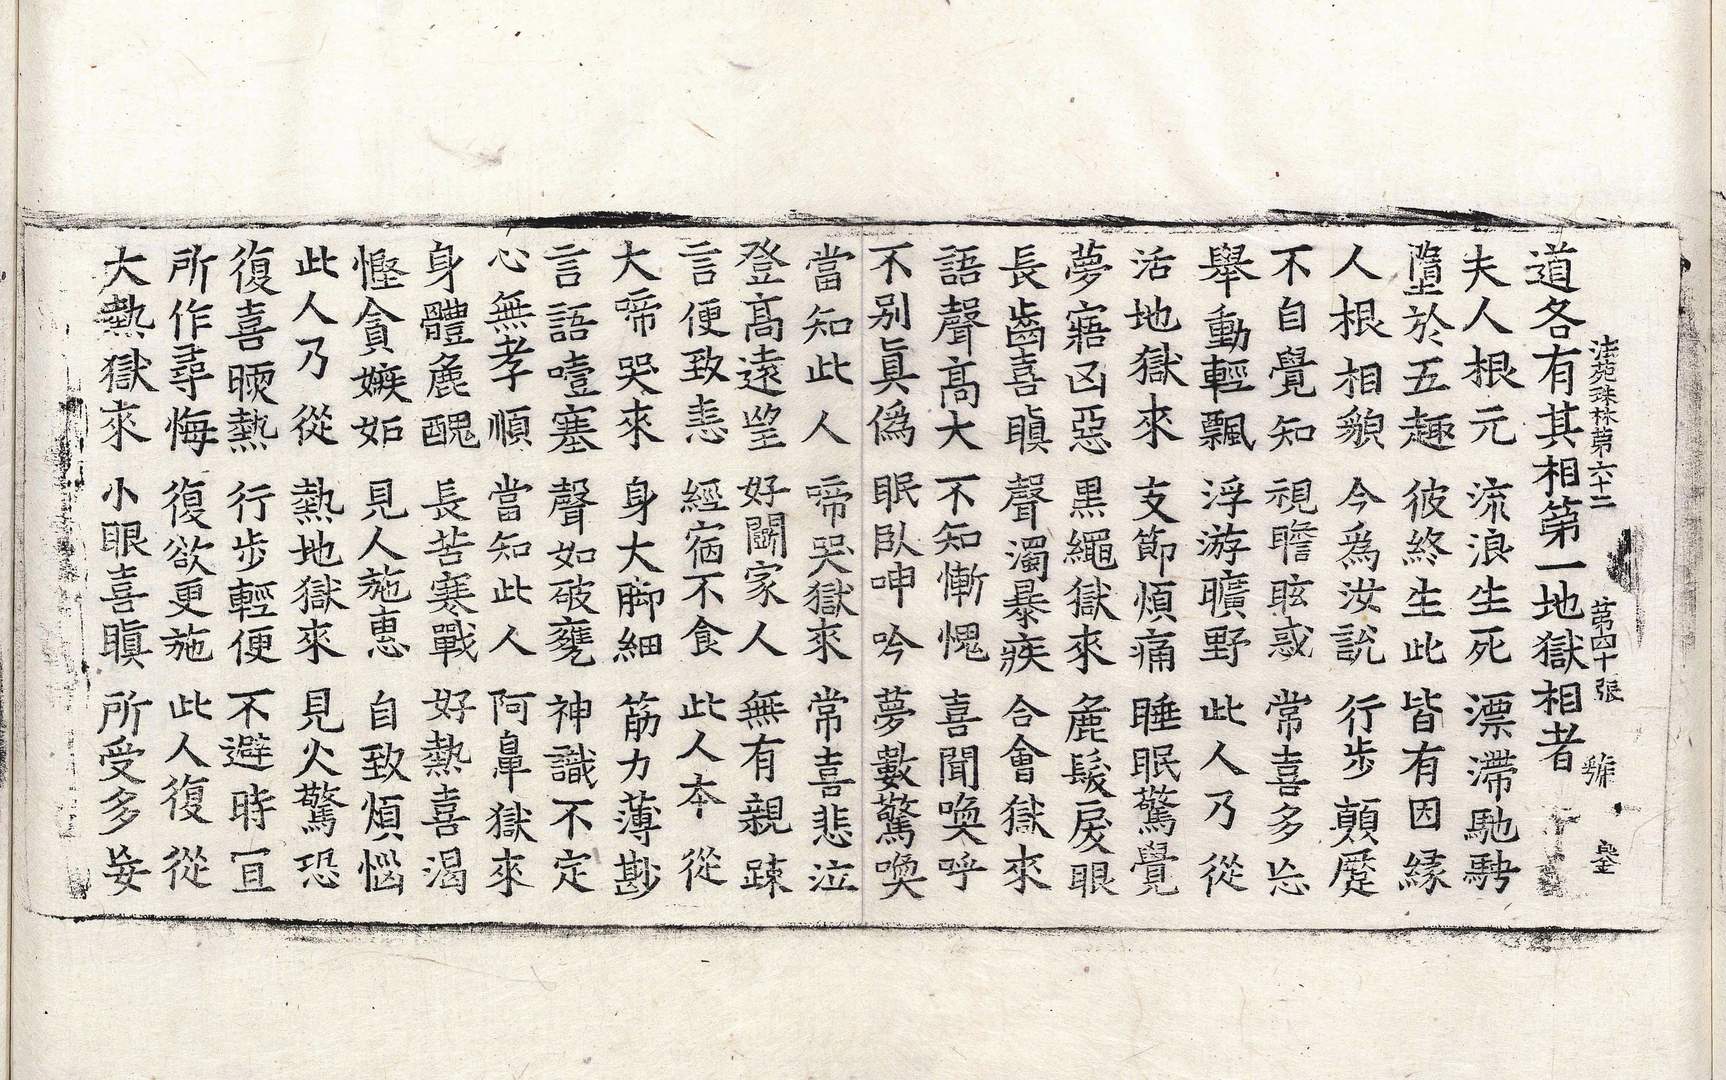 道各有其相第一地獄相者
法苑珠林第六十二 第四十張
夫人根元 流浪生死 漂滯馳騁
墮於五趣 彼終生此 皆有因緣
人根相貌 今為汝說 行步顛蹷
不自覺知 視瞻眩惑 常喜多忘
舉動輕飄 浮游曠野 此人乃從
活地獄來 支節煩痛 睡眠驚覺
夢寤凶惡 黑繩獄來 麁髮戾眼
長齒喜瞋 聲濁暴疾 合會獄來
語聲高大 不知慚愧 喜聞喚呼
不別真偽 眠臥呻吟 夢數驚喚
當知此人 啼哭獄來 常喜悲泣
登高遠望 好鬪家人 無有親踈
言便致恚 經宿不食 此人本從
大啼哭來 身大脚細 筋力薄尠
言語噎塞 聲如破甕 神識不定
心無孝順 當知此人 阿鼻獄來
身體麁醜 長苦寒戰 好熱喜渴
慳貪嫉妬 見人施惠 自致煩惱
此人乃從 熱地獄來 見火驚恐
復喜暖熱 行步輕便 不避時宜
所作尋悔 復欲更施 此人復從
大熱獄來 小眼喜瞋 所受多妄